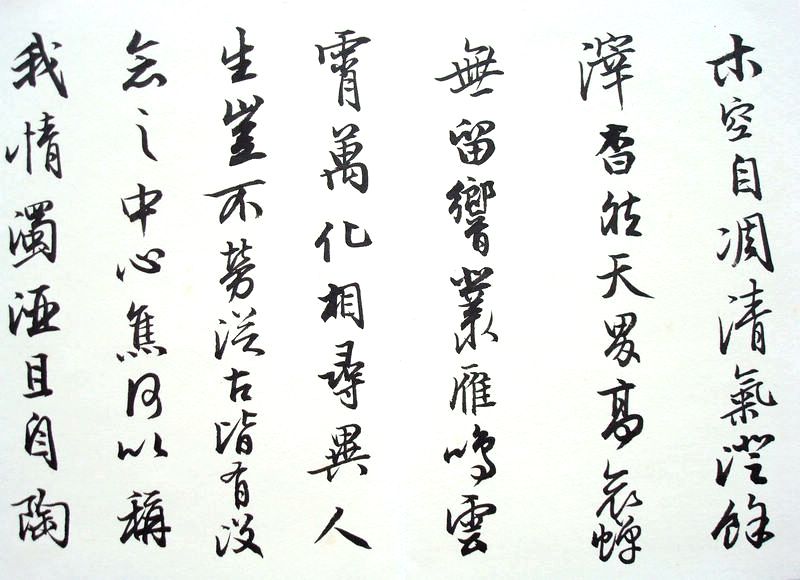 木空自凋清氣澄餘
滓杳然天界高哀蟬
無留響叢雁鳴雲
霄萬化相尋異人
生豈不勞從古皆有没
念之中心焦何以稱
我情濁酒且自陶